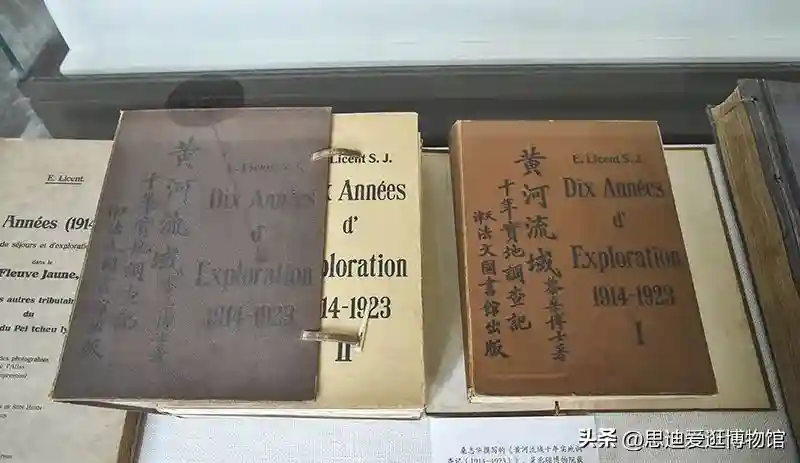 E. Licent
Années (1914
de séjours et d'explora
dans le
Fleuve Jaune,
s autres tributai
du
du Pei tcheu ly
des photographies
l'Atlas
黄河流域
十年實地調查記
E. Licent S. J.
Dix Années
d'
Exploration
1914-1923
Licent S. J.
x Années
d'
ploration
1914-1923
II
黄河流域
桑志華博士著
十年實地調查記
天津法文圖書館出版
E. Licent S. J.
Dix Années
d'
Exploration
1914-1923
I
桑志华撰写的《黄河流域十年实地调
查记（1914-1923）》
头条 @思迪爱逛博物馆